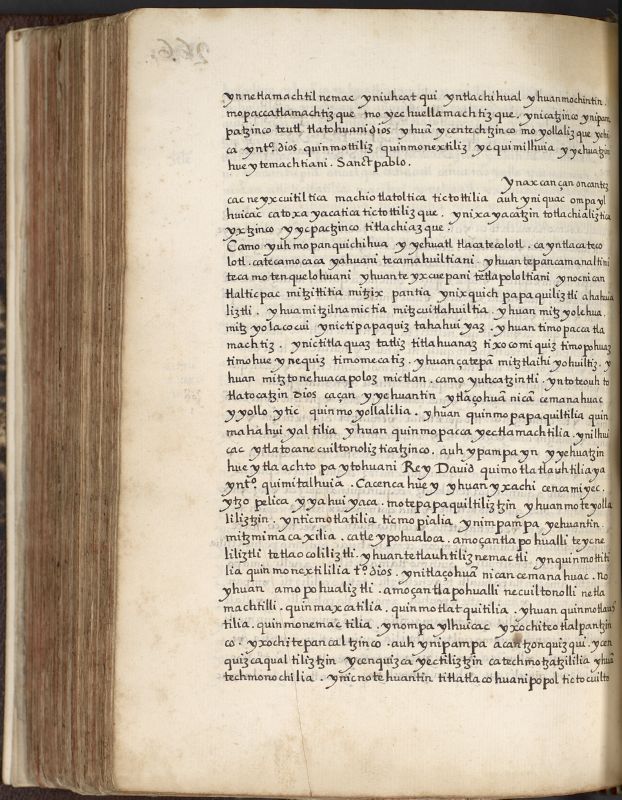 ynnetlamachtil nemac yniuhcat qui yntlachihual yhuanmochintin.
mopaccatlamachtiz que mo yec huellamachtiz que. ynicatzinco ynipam
patzinco teutl tlatohuani dios yhuā ycentechtzinco mo yollaliz que ychi
ca yntº. dios quinmottiliz quinmonextiliz yc quimilhuia yyehuatzin
hue ytemachtiani. Sanct pablo.
ynaxcan çan oncantez
cac neyxcuitiltica machiotlatoltica tictottilia auh yniquac ompa yl
huicac catoxayacatica tictottiliz que. ynixayacatzin totlachializtica
yxtzinco yycpactzinco titlachiaz que.
Camo yuhmopanquichihua yyehuatl tlacatecolotl. ca yntlacateco
lotl. catecamocaca yahuani tecamahuiltiani. yhuantepancamanaltini
tecamotenquelohuani yhuante yxcuepani tetlapololtiani ynocnican
tlalticpac mitzittitia mitzix pantia ynixquich papaquiliztli ahahuia
liztli. yhuamitzilnamictia mitzcuitlahuiltia. yhuan mitz yolehua.
mitz yolacocui ynictipapaquiz tahahuiyaz. yhuan timopaccatla
machtiz. ynictitlaquaz tatliz titlahuanaz tixocomiquiz timopohuaz
timohueynequiz timomecatiz. yhuançatepā mitztlaihiyohuiltiz. y
huan mitztonehuacapoloz mictlan. camo yuhcatzintli. yntoteouh to
tlatocatzin dios caçan yyehuantin ytlaçohuā nicā cemanahuac
yyollo ytic quinmoyollalilia. yhuan quinmopapaquiltilia quin
mahahuiyaltilia yhuan quinmopacca yectlamachtilia. ynilhui
cac ytlatocanecuiltonoliztica tzinco. auh ypampayn yyehuatzin
hue ytla achto pa ytohuani Rey Dauid quimotlatlauhtiliaya
yntº. quimitalhuia. Cacenca huey yhuan yxachi cencamiyec.
ytzopelica yyahuiyaca. motepapaquiltiliztzin yhuanmoteyolla
liliztzin. ynticmotlatilia ticmopialia ynimpampa yehuantin.
mitzmimacaxilia. catle ypohualoca. amoçantlapohualli teycne
liliztli tetlaocoliliztli. yhuantetlauhtiliz nemactli ynquinmottiti
lia quinmonextililia tº. dios. ynitlaçohuā nican cemanahuac. no
yhuan amopohualiztli. amoçantlapohualli necuiltonolli netla
machtilli. quinmaxcatilia. quinmotlatquitilia. yhuan quinmotlauh
tilia. quinmonemactilia. ynompa ylhuicac yxochiteotlalpantzin
co. yxochitepancaltzinco. auh ynipampa acantzonquizqui. ycen
quizcaqualtiliztzin ycenquizcayectiliztzin catechmotzatzililia yhuā
techmonochilia. ynicnotehuantin titlatlacohuanipopol tictocuilto